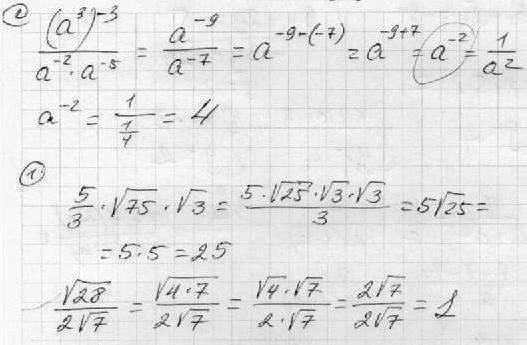 ② (a³)⁻³ / (a⁻² · a⁻⁵) = a⁻⁹ / a⁻⁷ = a⁻⁹⁻⁽⁻⁷⁾ = a⁻⁹⁺⁷ = a⁻² = 1 / a²
a⁻² = 1 / (1/4) = 4
①
5/3 · √75 · √3 = (5 · √25 · √3 · √3) / 3 = 5√25 =
= 5 · 5 = 25
√28 / 2√7 = √(4 · 7) / 2√7 = (√4 · √7) / (2 · √7) = 2√7 / 2√7 = 1